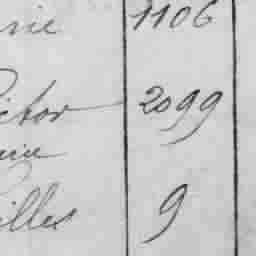 rie 1106
ictor 2099
illes 9